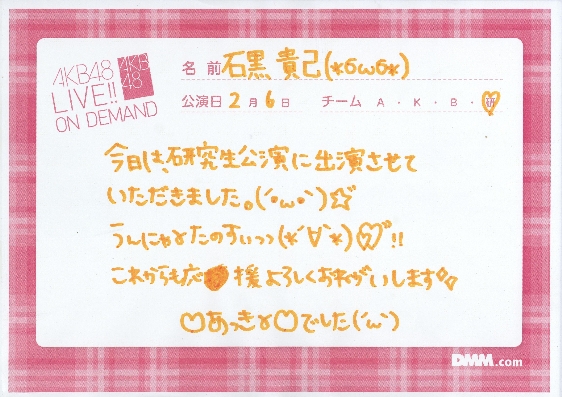 AKB48
LIVE!!
ON DEMAND
AKB
48
名前 石黒 貴己(*σωσ*)
公演日 2月6日 チーム A・K・B・研
今日は、研究生公演に出演させて
いただきました。(´・ω・`)☆
うんにゃょたのすぃっっ(*´∀`*)♡!!
これからも応援よろしくおねがいします
♡あっきょ♡でした(´ω`)
DMM.com